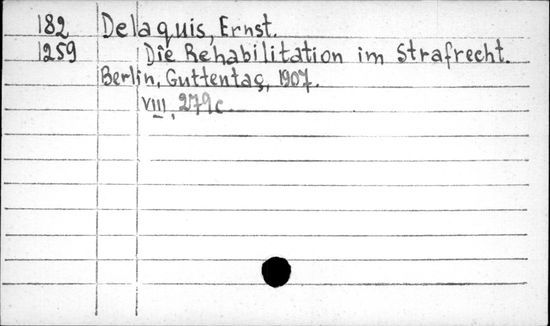 182 Delaquis, Ernst.
1259 Die Rehabilitation im Strafrecht.
Berlin, Guttentag, 1907.
VIII, 279c.